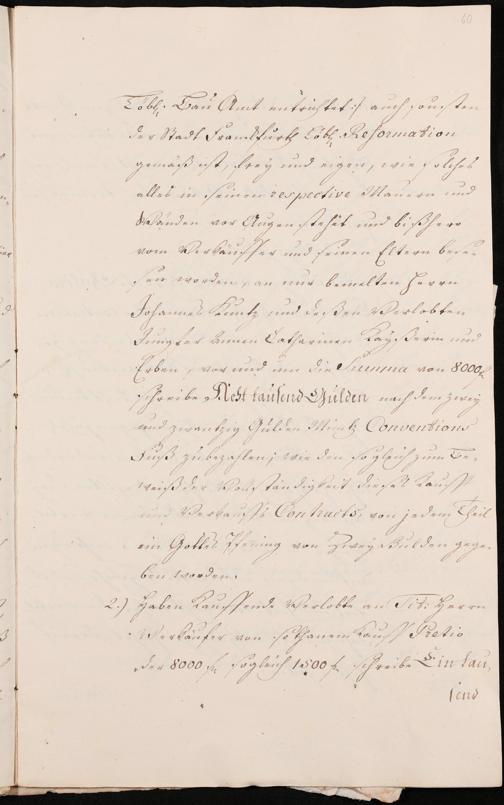 60
Löbl. Bau Amt entrichtet :/ auch sonsten
der Stadt Franckfurth Löbl. Reformation
gemäß ist, frey und eigen, wie solches
alles in seinen respective Mauern und
Wänden vor Augen stehet und bißhero
vom Verkäuffer und seinen Eltern beses
sen worden, an nur bemelten Herrn
Johannes Kuntz und deßen Verlobten
Jungfer Annen Catharinen Kayßerin und
Erben, vor und um die Summa von 8000 f
schreibe Acht tausend Gülden nach dem zwey
und zwantzig Gülden Müntz Conventions
Fuß zubezahlen; wie den sogleich zum Be-
weiß der Vollständigkeit dieses Kauff
und Verkauffs Contracts, von jedem Theil
ein Gottes Pfennig von Zwey Gulden gege
ben worden.
2.) Haben Kauffende Verlobte an Tit: Herrn
Verkäufer von sothanem Kauff Pretio
der 8000 f. sogleich 1500 f schreibe Ein tau,
send